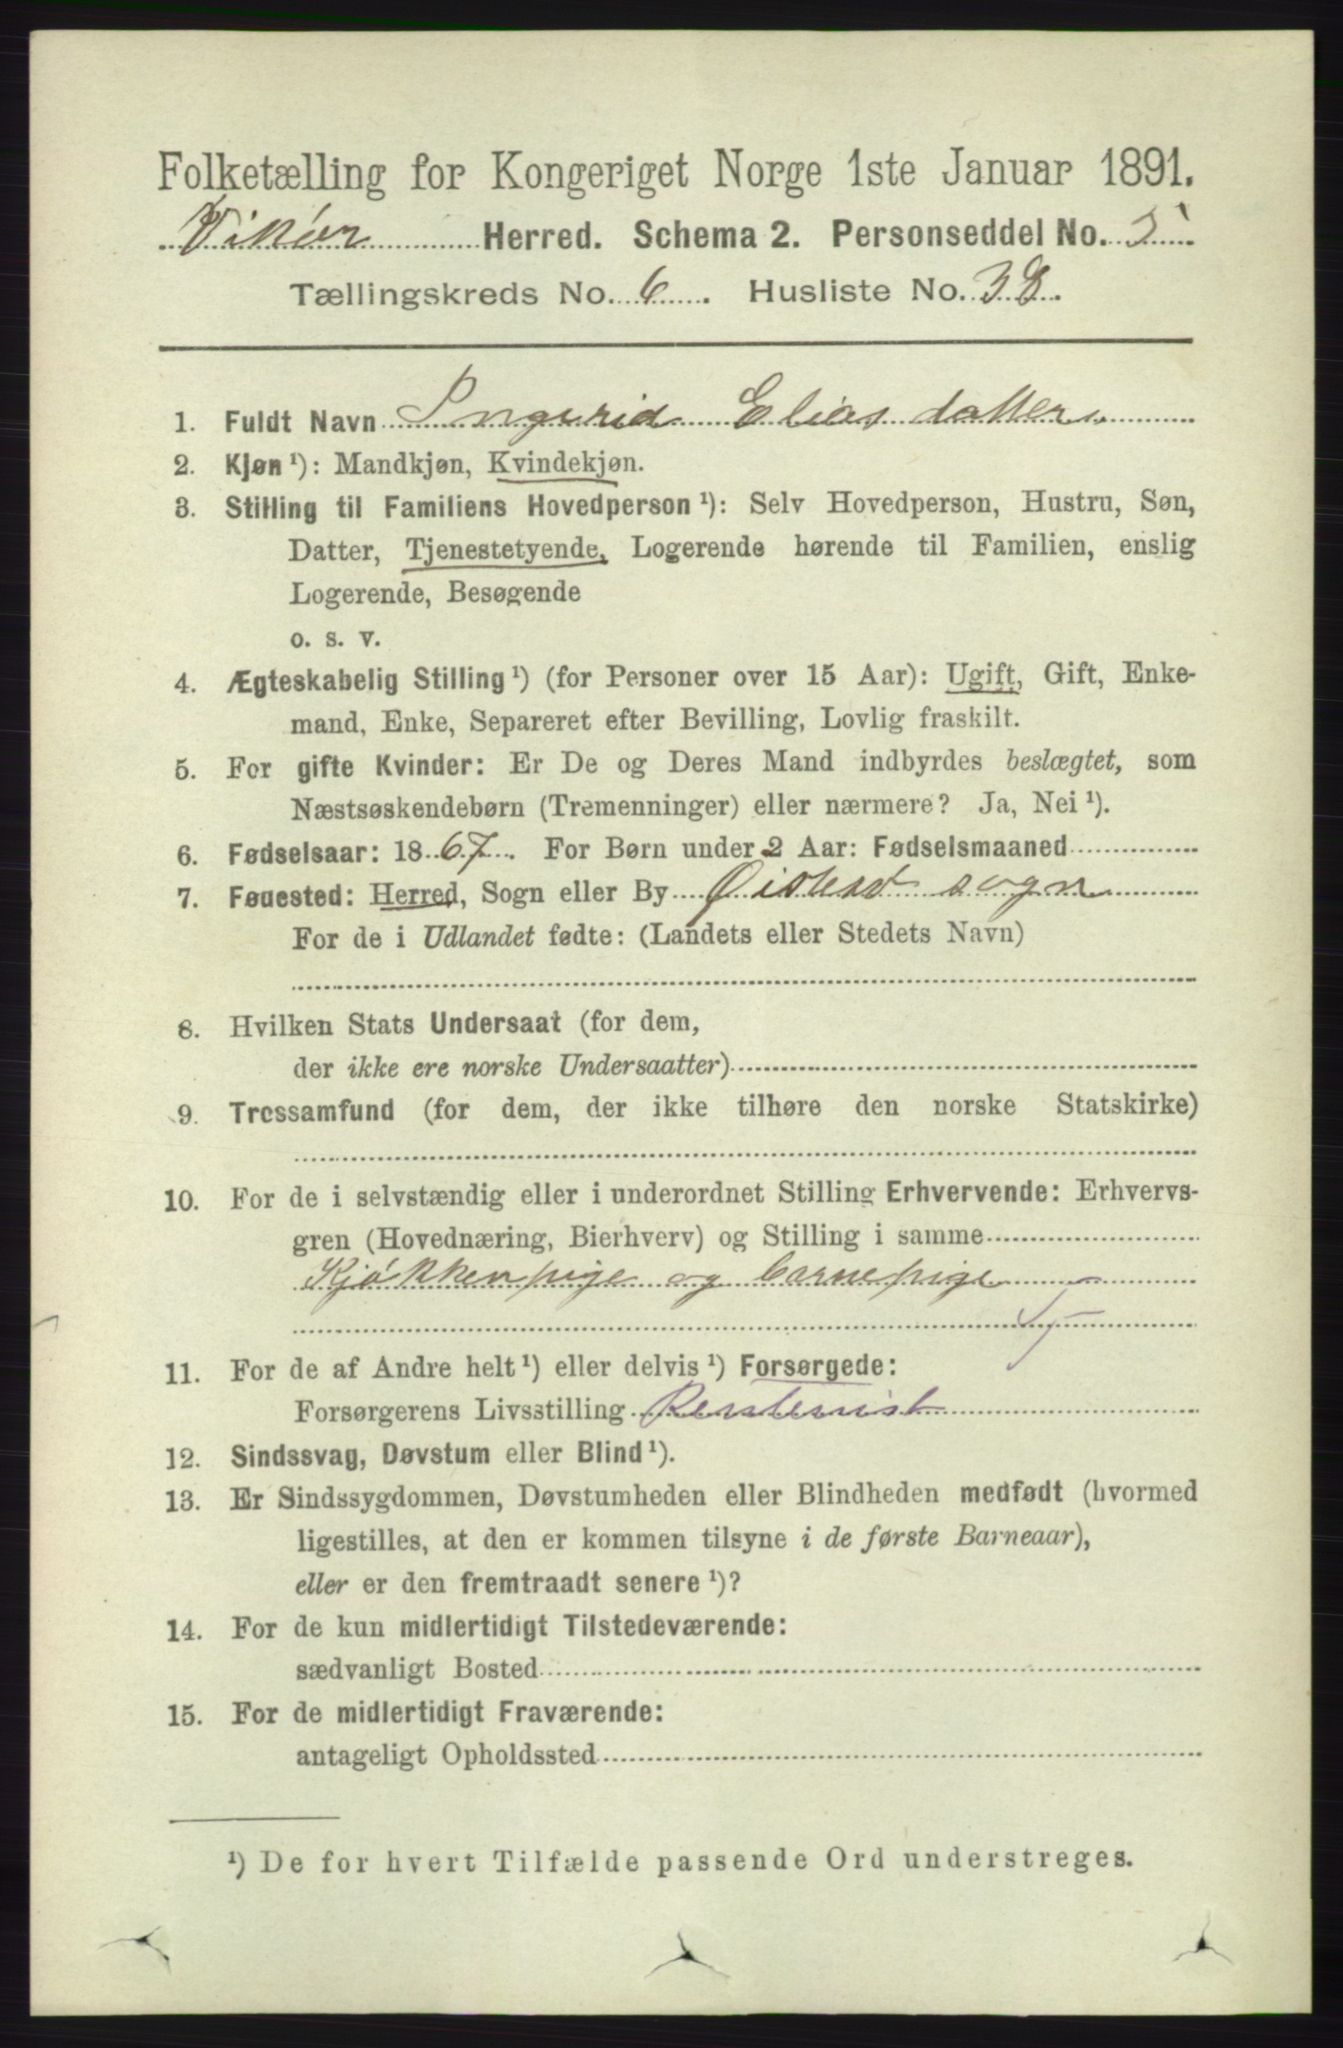 Folketælling for Kongeriget Norge 1ste Januar 1891.
Vikør Herred. Schema 2. Personseddel No. 5
Tællingskreds No. 6. Husliste No. 38.
1. Fuldt Navn Ingerid Eliasdatter
2. Kjøn ¹): Mandkjøn, Kvindekjøn.
3. Stilling til Familiens Hovedperson ¹): Selv Hovedperson, Hustru, Søn,
Datter, Tjenestetyende, Logerende hørende til Familien, enslig
Logerende, Besøgende
o. s. v.
4. Ægteskabelig Stilling ¹) (for Personer over 15 Aar): Ugift, Gift, Enke-
mand, Enke, Separeret efter Bevilling, Lovlig fraskilt.
5. For gifte Kvinder: Er De og Deres Mand indbyrdes beslægtet, som
Næstsøskendebørn (Tremenninger) eller nærmere? Ja, Nei ¹).
6. Fødselsaar: 1867. For Børn under 2 Aar: Fødselsmaaned
7. Føuested: Herred, Sogn eller By Øistesø sogn
For de i Udlandet fødte: (Landets eller Stedets Navn)
8. Hvilken Stats Undersaat (for dem,
der ikke ere norske Undersaatter)
9. Trossamfund (for dem, der ikke tilhøre den norske Statskirke)
10. For de i selvstændig eller i underordnet Stilling Erhvervende: Erhvervs-
gren (Hovednæring, Bierhverv) og Stilling i samme
Kjøkkenpige og barnepige
11. For de af Andre helt ¹) eller delvis ¹) Forsørgede:
Forsørgerens Livsstilling Rentenist
12. Sindssvag, Døvstum eller Blind ¹).
13. Er Sindssygdommen, Døvstumheden eller Blindheden medfødt (hvormed
ligestilles, at den er kommen tilsyne i de første Barneaar),
eller er den fremtraadt senere ¹)?
14. For de kun midlertidigt Tilstedeværende:
sædvanligt Bosted
15. For de midlertidigt Fraværende:
antageligt Opholdssted
¹) De for hvert Tilfælde passende Ord understreges.